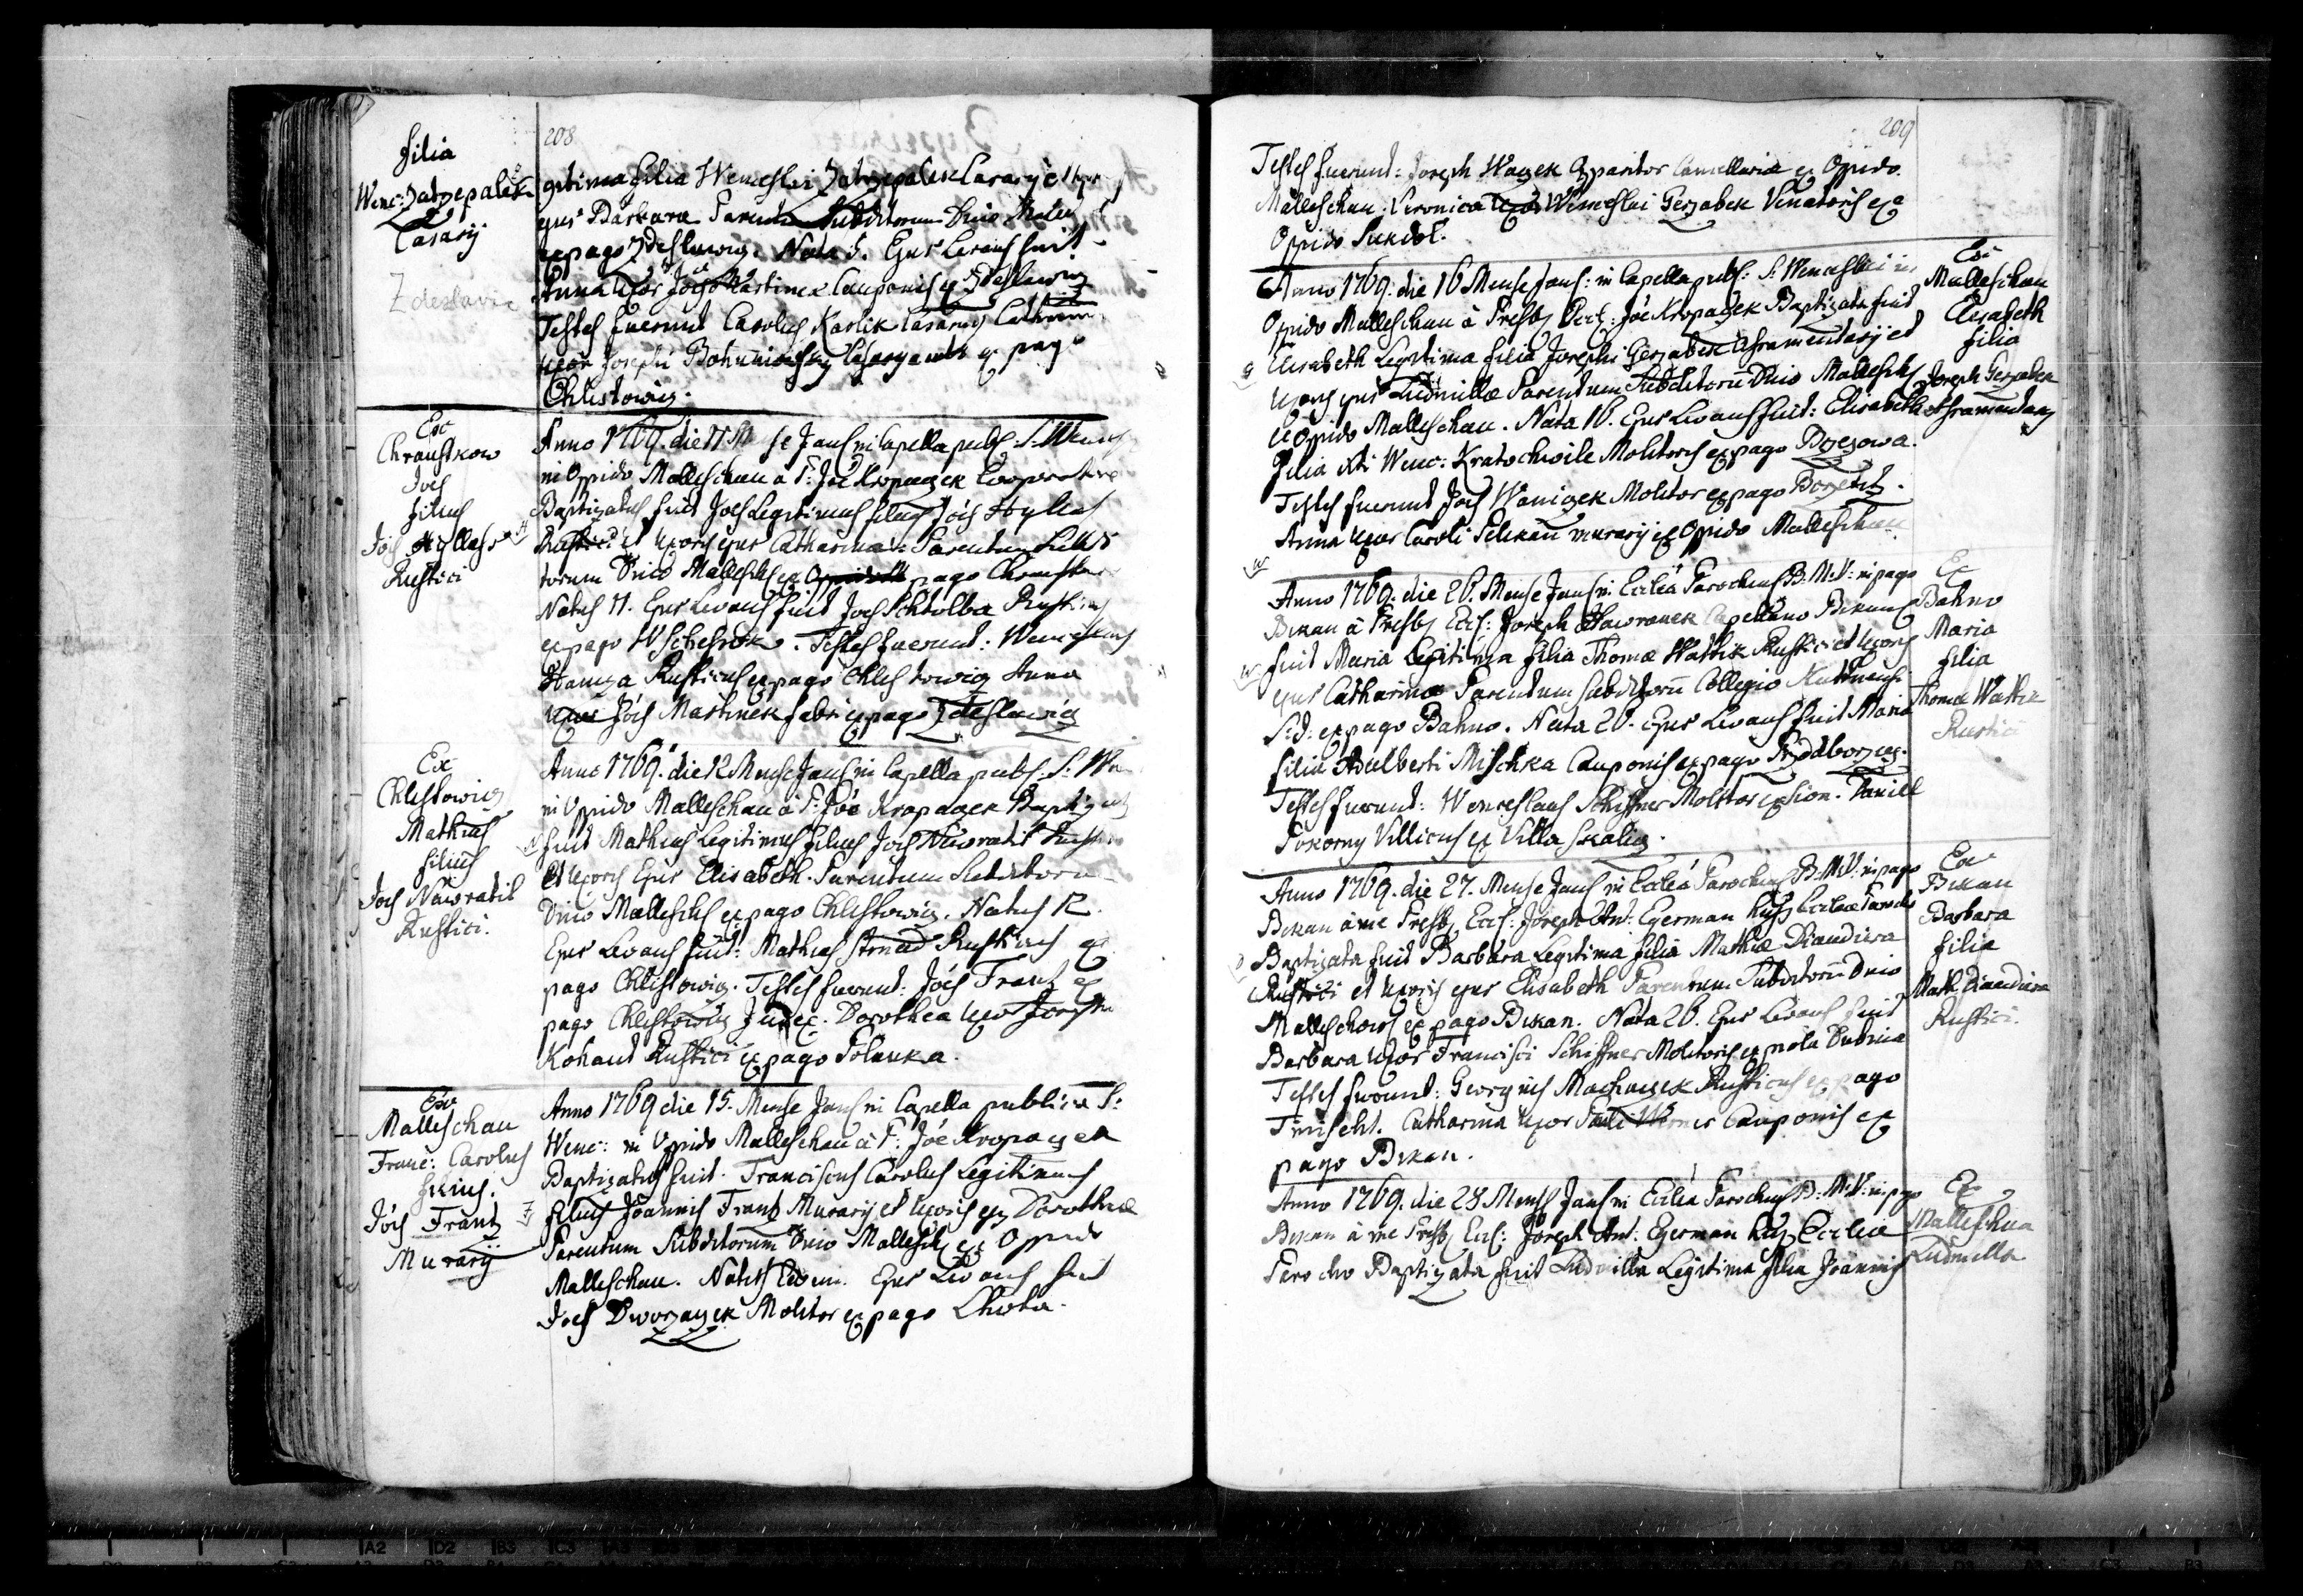 208
filia
Wenc: Zatzepalek
Casarij
Zdeslavic
gitima filia Wenceslai Zatzepalek Casarij et
ejus Barbara Parentum Subditorum Dnio
ex pago Zdeslawicz. Nata 8. Ejus Levans fuit
Anna Uxor Jois Martinek Cauponis ex Zdeslawicz
Testes fuerunt Carolus Karlik Casarius Catharina
uxor Josephi ex pago
Chlistowicz.
Ex
Chraustkow
Joes
filius
Jois Hyllas
Rustici
Anno 1769. die 11 Mense Jans in Capella publ: S: Wences
in Oppido Malleschau a P: Joe Kropaczek Cooperatore
Baptizatus fuit Joes Legitimus filius Jois Hyllas
Rustici et Uxoris ejus Catharina: Parentum Subdi
torum Dnio Mallesch ex pago Chraustkow
Natus 11. Ejus Levans fuit Joes Schtolba Rusticus
ex pago Wschesok. Testes fuerunt: Wenceslaus
Hamza Rusticus ex pago Chlistowicz Anna
Uxor Jois Martinek fabri ex pago Zdeslawicz
Ex
Chlistowicz
Mathias
filius
Jois Nawratil
Rustici.
Anno 1769. die 12 Mense Jans in Capella publ: S: We
in Oppido Malleschau a P: Joe Kropaczek Baptizatus
fuit Mathias Legitimus filius Jois Nawratil Rustici
et Uxoris Ejus Elisabeth. Parentum Subditorum
Dnio Mallesch ex pago Chlistowicz. Natus 12.
Ejus Levans fuit: Mathias Strnad Rusticus ex
pago Chlistowicz. Testes fuerunt: Jois Frantz ex
pago Chlistowicz Judex. Dorothea Uxor Josephi
Kohaut Rustici ex pago Polanka.
Ex
Malleschau
Franc: Carolus
filius.
Jois Frantz
Murarij
Anno 1769 die 15. Mense Jans in Capella publica S:
Wenc: in Oppido Malleschau a P: Joe Kropaczek
Baptizatus fuit. Franciscus Carolus Legitimus
filius Joannis Frantz Murarij et Uxoris ejus Dorotheae
Parentum Subditorum Dnio Mallesch ex Oppido
Malleschau. Natus Ejus Levans fuit
Joes Dworzaczek Molitor ex pago Lhota.
209
Testes fuerunt: Joseph Waczek Apparitor Cancellariae ex Oppido
Malleschau. Veronica Uxor Wenceslai Gerzabek Venatoris ex
Oppido Sukdol.
Anno 1769. die 16 Mense Jans: in Capella publ: S: Wenceslai in
Oppido Malleschau a Presb: Eccl: Joe Kropaczek Baptizata fuit
Elisabeth Legitima filia Josephi Gerzabek Aframentarij et
Uxoris ejus Ludmilla Parentum Subditorum Dnio Mallesch
ex Oppido Malleschau. Nata 16. Ejus Levans fuit: Elisabeth
filia Wenc: Kratochwile Molitoris ex pago Brzezowa.
Testes fuerunt Joes Waniczek Molitor ex pago
Anna Uxor Caroli Pelikan murarij ex Oppido Malleschau.
Ex
Malleschau
Elisabeth
filia
Joseph Gerzabek
Aframentary
Anno 1769. die 26. Mense Jans in Ecclea Parochiali B: M: V: in pago
Bikan a Presb: Eccl: Joseph Hawranek Capellano
fuit Maria Legitima filia Thomae Wattik Rustici et Uxoris
ejus Catharinae Parentum subditorum Collegio Kuttnensi
S: J: ex pago Bahno. Nata 26. Ejus Levans fuit Maria
filia Adalberti Mischka Cauponis ex pago Przidborzicz.
Testes fuerunt: Wenceslaus Schiffner Molitor ex Sion. Daniel
Pokorny Villicus ex Villa Skalicz.
Ex
Bahno
Maria
filia
Thomae Wattik
Rustici
Anno 1769. die 27. Mense Jans in Ecclea Parochiali B: M: V: in pago
Bikan a me Presb: Eccl: Joseph Ant: Egerman hujs Eccleae Parocho
Baptizata fuit Barbara Legitima filia Mathiae Diaudiera
Rustici et Uxoris ejus Elisabeth Parentum Subditorum Dnio
Malleschow ex pago Bikan. Nata 26. Ejus Levans fuit
Barbara Uxor Francisci Schiffner Molitoris ex mola Dubina
Testes fuerunt: Georgius Machaczek Rusticus ex pago
Catharina Uxor Pauli Cauponis ex
pago Bikan.
Ex
Bikan
Barbara
filia
Math. Diaudiera
Rustici.
Anno 1769. die 28 Mens Jans in Ecclea Parochiali B: M: V: in pago
Bikan a me Presb: Eccl: Joseph Ant: Egerman hujs Ecclea
Parocho Baptizata fuit Ludmilla Legitima filia Joannis
Ex
Malleschau
Ludmilla